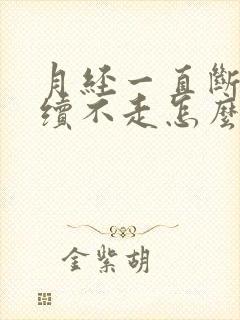 月经一直斷
續不走怎麼
金紫胡